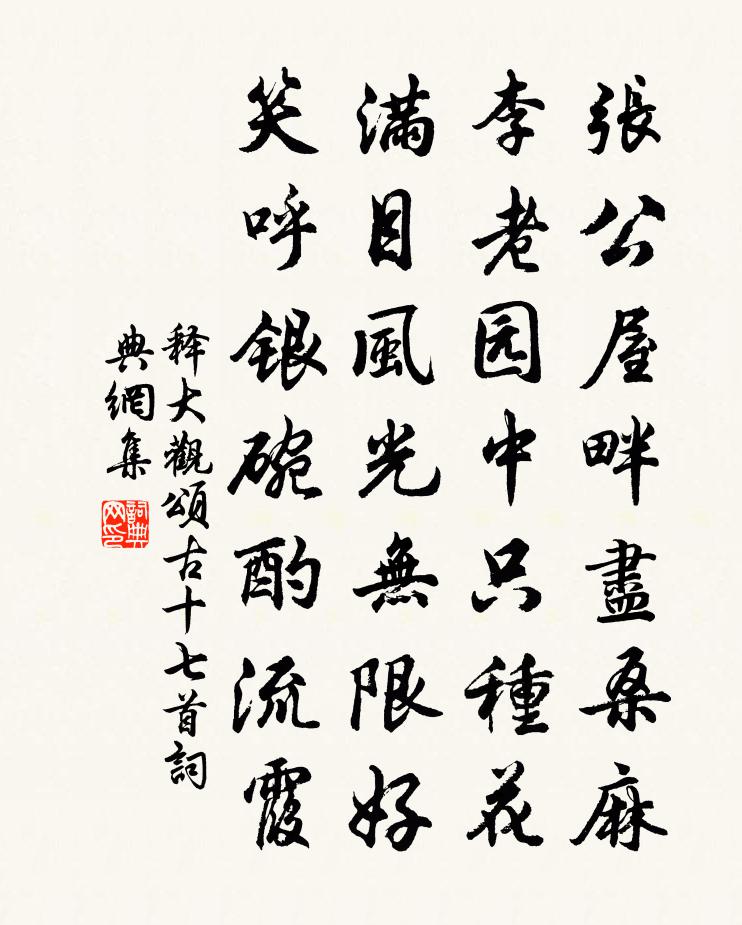 張公屋畔盡桑麻
李老园中只種花
滿目風光無限好
笑呼銀碗酌流霞
释大觀頌古十七首詞
典網集
詞典
网印